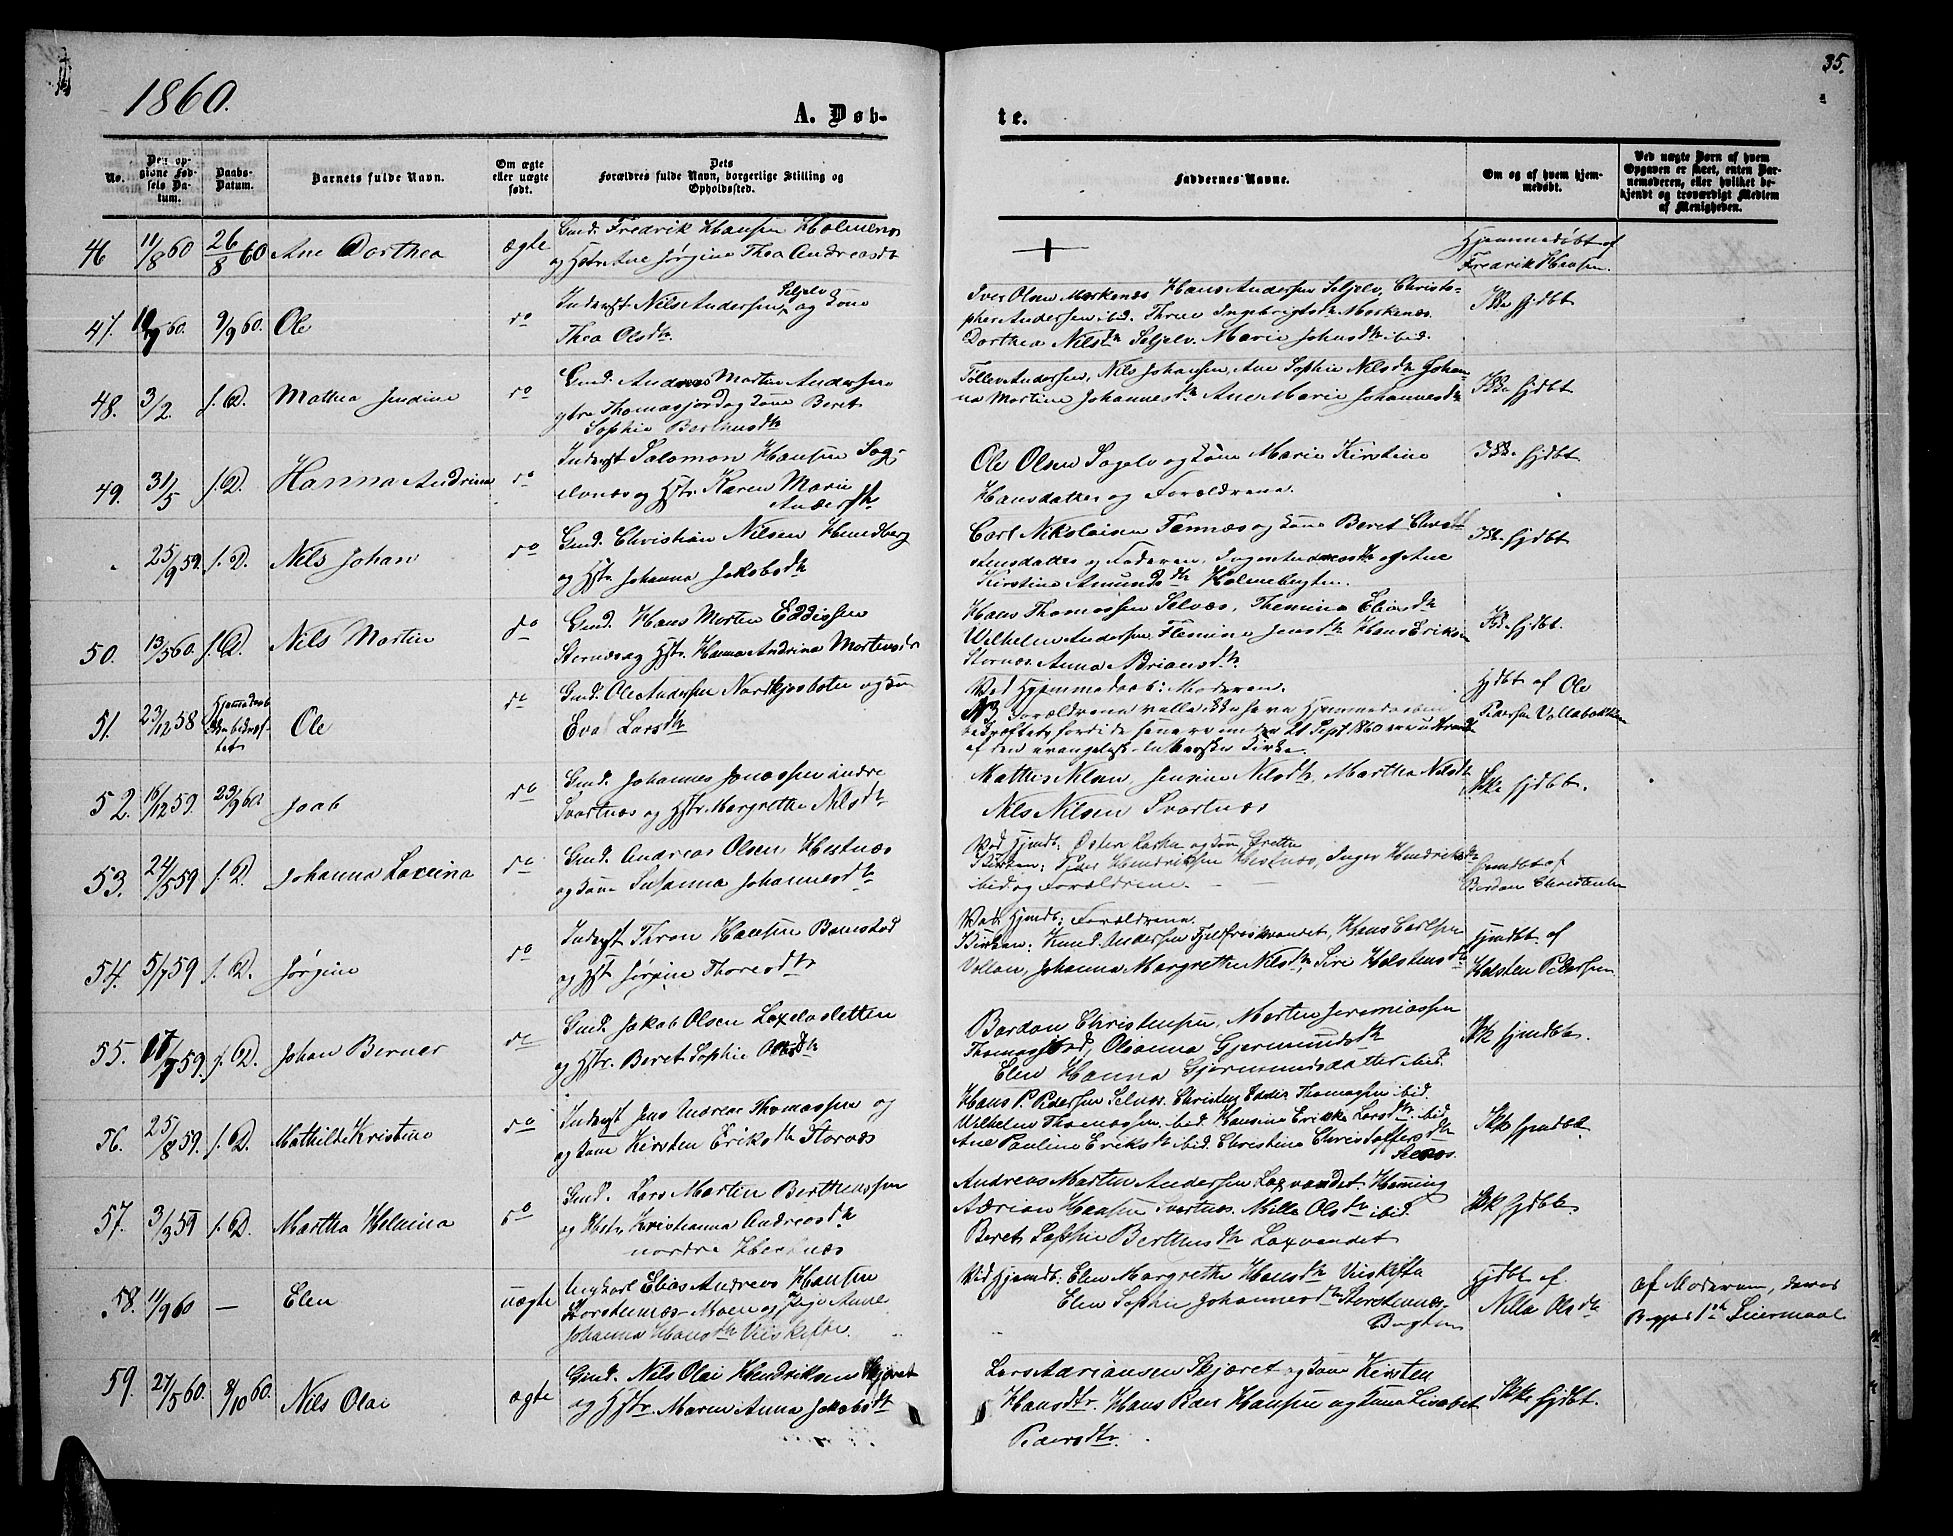 1860.
35.
A. Døb-
te.
No.
Den op-
givne Fød-
sels Da-
tum.
Daabs-
Datum.
Barnets fulde Navn.
Om ægte
eller uægte
født.
Dets
Forældres fulde Navn, borgerlige Stilling og
Opholdssted.
Faddernes Navne.
Om og af hvem hjem-
medøbt.
Ved uægte Børn af hvem
Opgaven er skeet, enten Bar-
nemoderen, eller hvilket be-
kjendt og troværdigt Medlem
af Menigheden.
46
11/8 60
26/8 60
Ane Dorthea
ægte
Gmd. Fredrik Hansen Holmenes
og Hstr Ane Jørgine Thea Andreasdt
Hjemmedøbt af
Fredrik Hansen.
47.
9/9 60.
Ole
do
Inderst Nils Andersen Seljelv og Kone
Thea Olsdtr.
Iver Olsen Markenæs Hans Andersen Seljelv, Christo-
pher Andersen ibid. Thrine Ingebrigtsdtr Markenæs.
Dorthea Nilsdtr Seljelv. Marie Johnsdtr ibid.
Ikke hjdbt
48.
3/2.
f. D.
Mathea Jendine
do
Gmd. Andreas Martin Andersen
ytre Thomasjord og Kone Beret
Sophie Berthusdtr
Tollev Andersen, Nils Johansen, Ane Sophie Nilsdtr Johan-
na Martine Johannesdtr Ane Marie Johannesdtr
Ikke hjdbt
49.
31/5
f. D.
Hanna Andrina
do
Inderst Salomon Hansen Sag-
elvnæs og Hstr. Karen Marie
Andersdtr
Ole Olsen Sagelv og Kone Marie Kirstine
Hansdatter og Forældrene.
Ikke hjdbt
25/9 59.
f. D.
Nils Johan
do
Gmd. Christian Nilsen Hundberg
og Hstr. Johanna Jakobsdtr
Carl Nikolaisen Tennæs og Kone Beret Christ-
ensdatter og Faderen, Inger Andreasdtr og Ane
Kirstine Amundsdtr Holmebugten.
Ikke hjdbt
50.
13/5 60.
f. D.
Nils Martin
do
Gmd. Hans Morten Eddissen
Stornæs og Hstr. Hanna Andrina Mortensdtr
Hans Thomassen Selnæs, Themina Eliasdtr
Wilhelm Andersen, Flemine Jensdtr Hans Eriksen
Stornæs Anna Briansdtr.
Ikke hjdbt.
51.
23/12 58
Hjemmedaab
Ikke bekræf-
tet
Ole
do
Gmd. Ole Andersen Nordkjosbotn og Kone
Eva Larsdtr
Ved Hjemmedaab: Moderen.
NB Forældrene ville ikke have Hjemmedaaben
bekræftet, fordi de senere under 21 Sept 1860 ere udtraadt
af den evangelisk-lutherske Kirke.
hjdbt af Ole
Pedersen Vollabakken
52.
16/12 59
23/9 60
Joab
do
Gmd. Johannes Jonassen indre
Svartnæs og Hstr. Margrethe Nilsdtr
Mathis Nilsen, Jensine Nilsdtr, Martha Nilsdtr
Nils Nilsen Svartnæs
Ikke hjdbt.
53.
24/5 59
f. D.
Johanna Laxeina
do
Gmd. Andreas Olsen Hestnæs
og Kone Susanna Johannesdtr
Ved Hjmdb: Østen Lasha og Kone Grethe
Kirken: Peder Hendriksen Hestnæs, Inger Hendriksdtr
ibid og Forældrene.
hjmdbt af
Bardon Christensen
54.
5/7 59
f. D.
Jørgine
do
Inderst Thron Hansen Bomstad
og Hst. Jørgine Thoresdtr
Ved Hjmdb: Forældrene.
Kirken: Knud Andersen Fjelfroskvandet, Hans Carlsen
Vollan, Johanna Margrethe Nilsdtr, Sire Holstensdtr
hjmdbt af
Holsten Pedersen
55.
17/7 59.
f. D.
Johan Berner
do
Gmd. Jakob Olsen Laxelvsletten
og Hstr. Beret Sophie Olsdtr
Bardon Christensen, Morten Jeremiassen
Thomasjord, Oleanna Gjermundsdtr
Elen Hanna Gjermundsdatter ibid.
Ikke hjmdbt.
56.
25/8 59.
f. D.
Mathilde Kristine
do
Inderst Jens Andreas Thomassen og
og Kone Kirsten Eriksdtr Stornæs
Hans P. Pedersen Selnæs. Christen Edder Thomassen ibid.
Wilhelm Thomassen ibid. Hansine Erikke Larsdtr ibid
Ane Pauline Eriksdtr ibid. Christine Christoffersdtr
Selnæs.
Ikke hjmdbt
57.
3/3 59
f. D.
Martha Helmina
do
Gmd. Lars Martin Berthenssen
og Hstr Kristianna Andreasdtr
nordre Hestnæs
Andreas Martin Andersen Laxvandet. Henning
Adrian Hansen Svartnæs. Milla Olsdtr ibid.
Beret Sophie Berthusdtr Laxvandet
Ikke hjdbt.
58.
11/9 60
—
Elen
uægte
Ungkarl Elias Andreas Hansen
Storstennæs-Moen og Pige Anne
Johanna Hansdtr Viiskifte.
Ved Hjmdb: Elen Margrethe Hansdtr Viiskifte
Elen Sophie Johannesdtr Storstennæs-
Bugten
hjdbt af
Nilla Olsdtr
af Moderen, deres
Begges 1ste Leiermaal
59.
27/5 60.
8/10 60.
Nils Olai
ægte
Gmd. Nils Olai Hendriksen Skjæret
og Hstr. Maren Anna Jakobsdtr
Lars Adriansen Skjæret og Kone Kirsten
Hansdtr. Hans Peder Hansen og Kone Lisabet
Pedersdtr.
Ikke hjdbt.